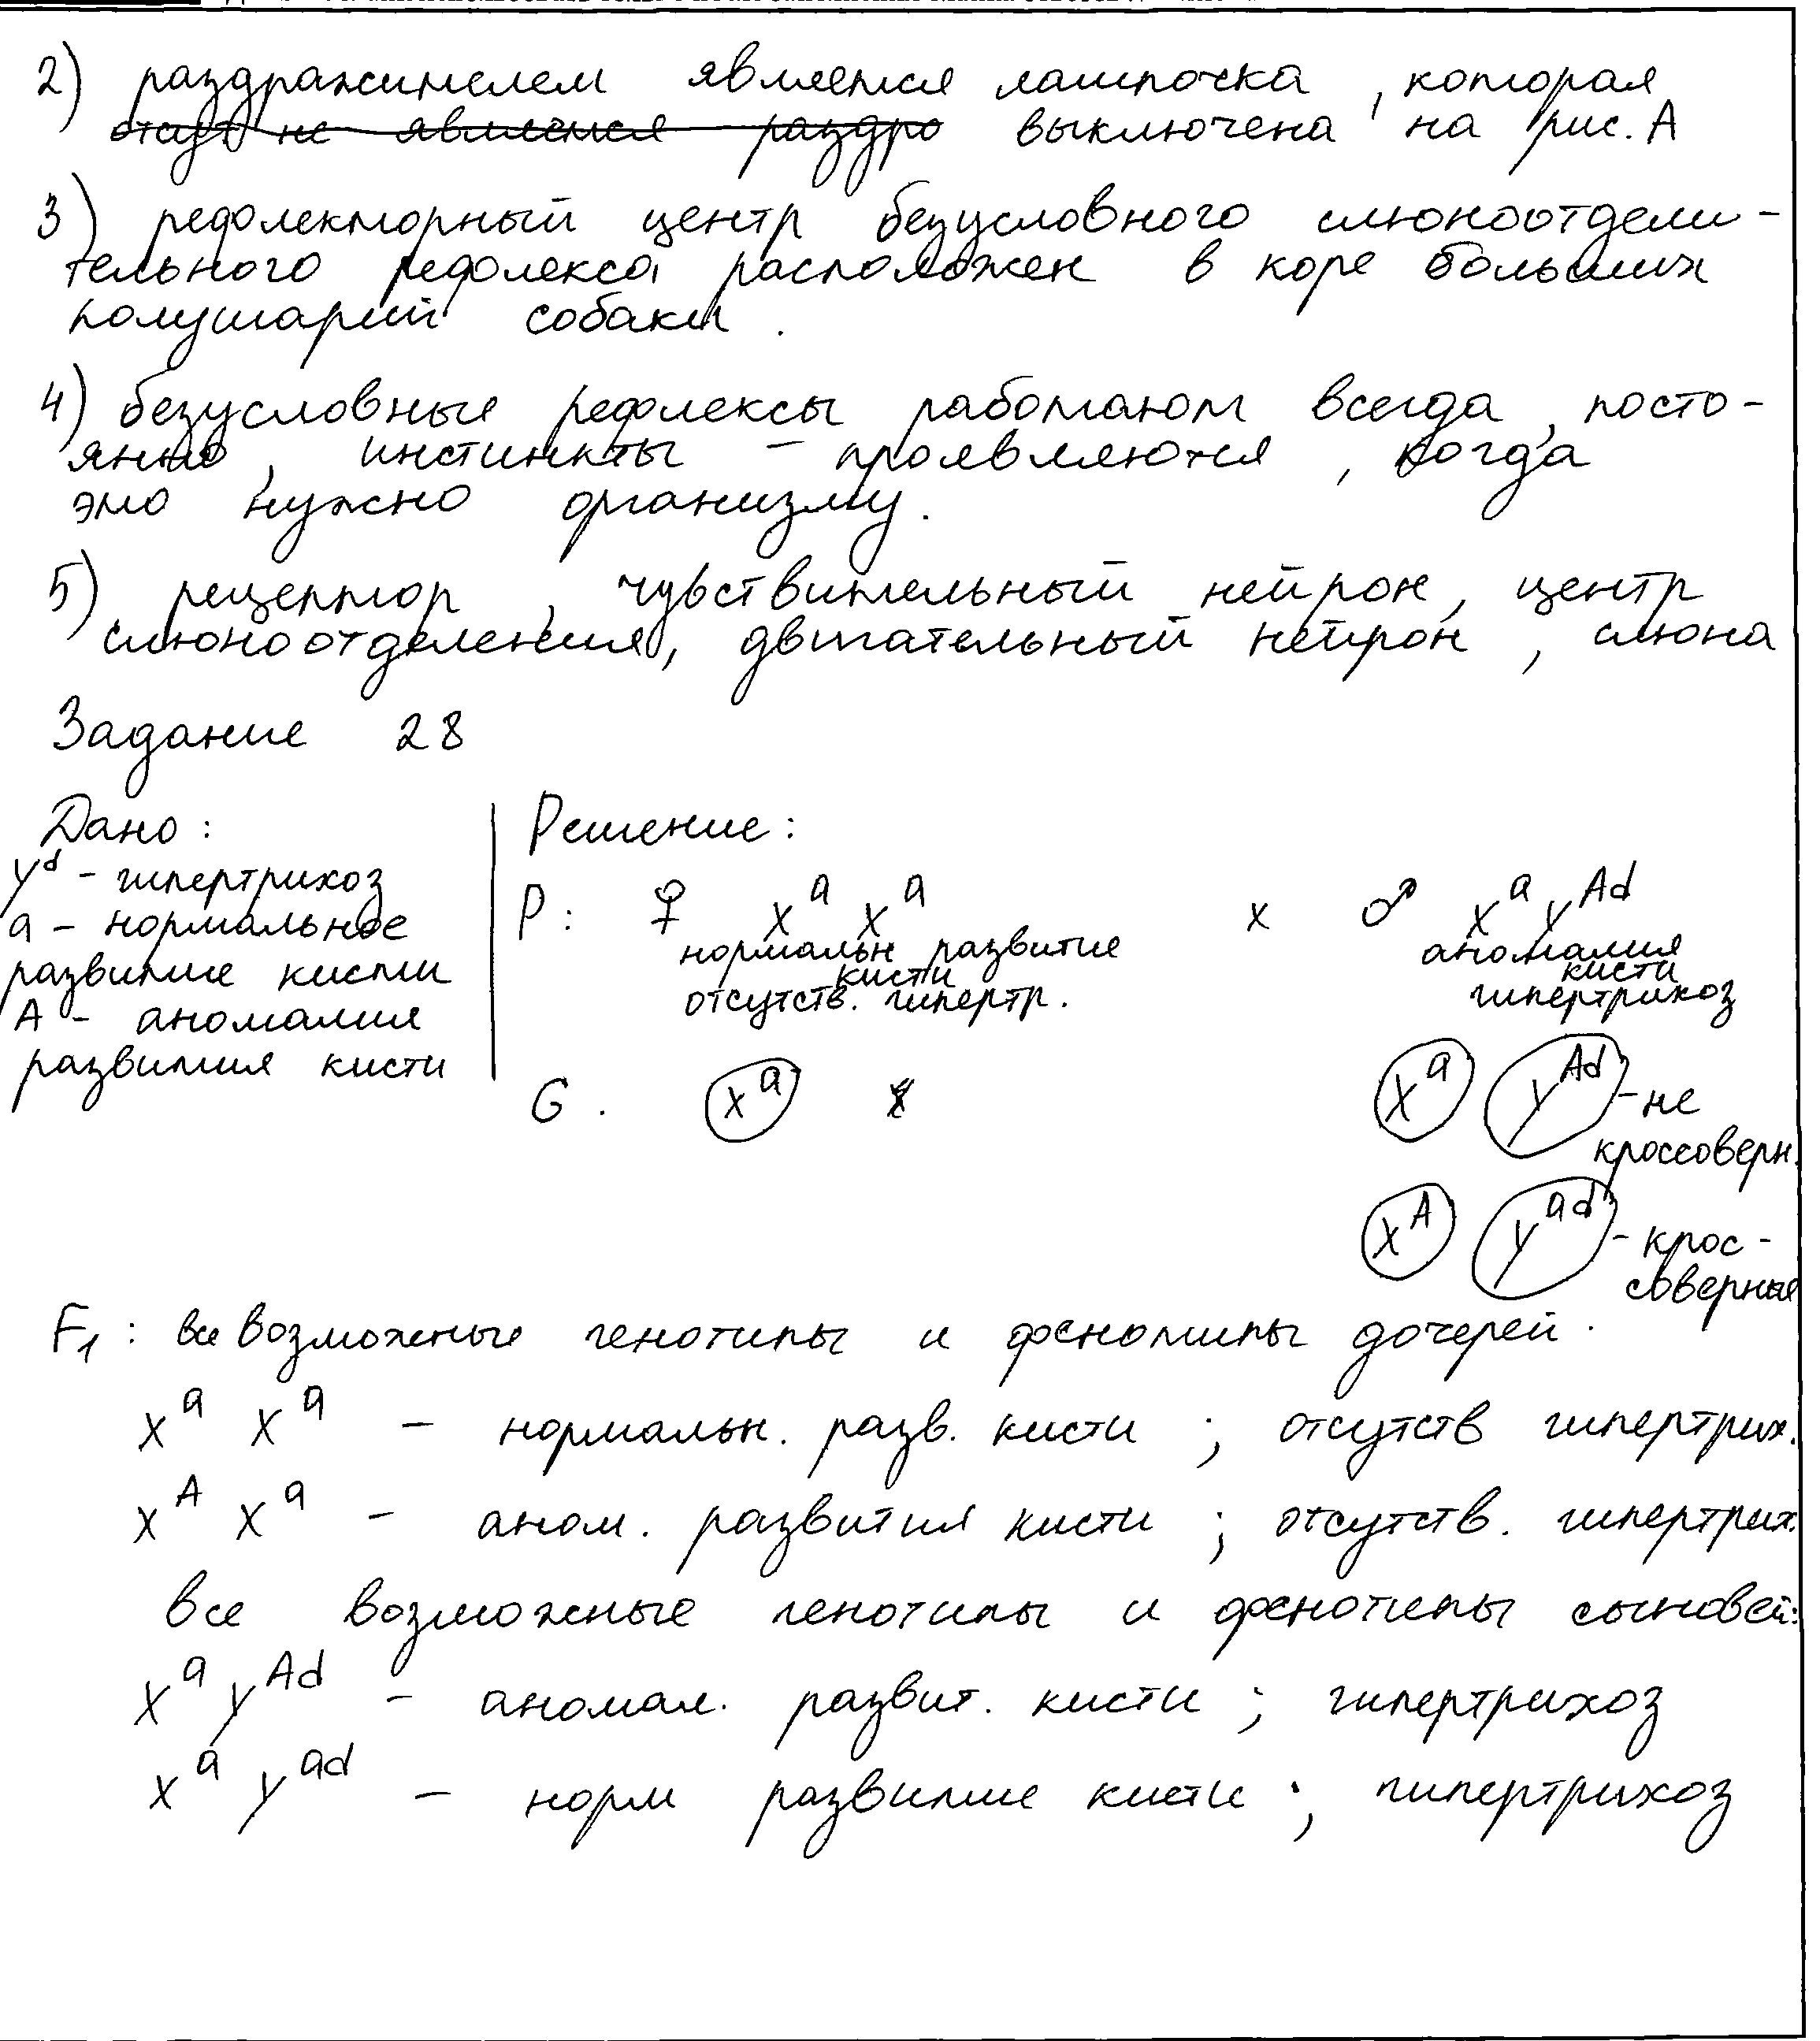 2) раздражителем является лампочка, которая
отсут не является раздра выключена на рис. А
3) рефлекторный центр безусловного слюноотдели-
тельного рефлекса расположен в коре больших
полушарий собаки.
4) безусловные рефлексы работают всегда, посто-
янно, инстинкты - проявляются, когда
это нужно организму.
5) рецептор, чувствительный нейрон, центр
слюноотделения, двигательный нейрон, слюна
Задание 28
Дано:
Yᵈ - гипертрихоз
a - нормальное
развитие кисти
A - аномалия
развития кисти
Решение:
P: ♀ Xᵃ Xᵃ x ♂ Xᵃ Yᴬᵈ
нормальн развитие кисти аномалия кисти
отсутств. гипертр. гипертрихоз
G. Xᵃ Xᵃ Yᴬᵈ - не
кроссоверн.
Xᴬ Yᵃᵈ - крос-
соверные
F₁: все возможные генотипы и фенотипы дочерей.
Xᵃ Xᵃ - нормальн. разв. кисти; отсутств гипертрих.
Xᴬ Xᵃ - аном. развития кисти; отсутств. гипертрих.
все возможные генотипы и фенотипы сыновей:
Xᵃ Yᴬᵈ - аномал. развит. кисти; гипертрихоз
Xᵃ Yᵃᵈ - норм развитие кисти; гипертрихоз